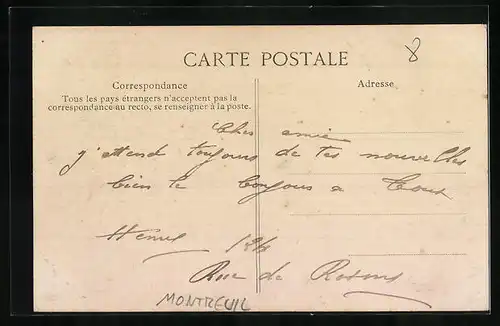 CARTE POSTALE
8
Correspondance
Tous les pays étrangers n'acceptent pas la
correspondance au recto, se renseigner à la poste.
Adresse
Cher amie
j'attend toujours de tes nouvelles
bien le bonjour a tous
184
Rue de
MONTREUIL